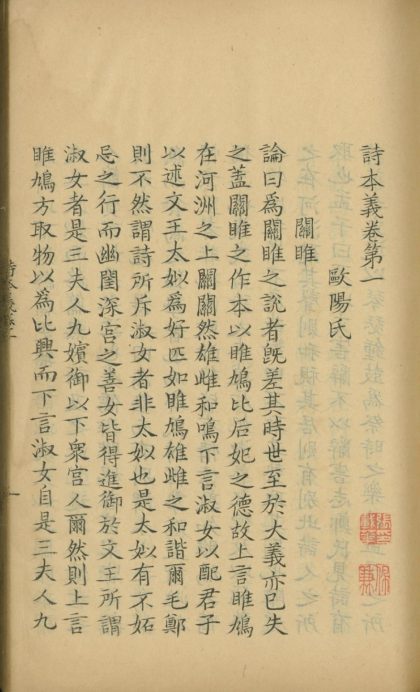 詩本義卷第一
歐陽氏
關雎
論曰爲關雎之說者旣差其時世至於大義亦已失
之葢關雎之作本以雎鳩比后妃之德故上言雎鳩
在河洲之上關關然雄雌和鳴下言淑女以配君子
以述文王太姒爲好匹如雎鳩雄雌之和諧爾毛鄭
則不然謂詩所斥淑女者非太姒也是太姒有不妬
忌之行而幽閨深宮之善女皆得進御於文王所謂
淑女者是三夫人九嬪御以下衆宮人爾然則上言
雎鳩方取物以爲比興而下言淑女自是三夫人九